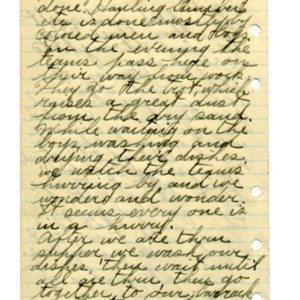 done. Hauling lumber
etc is done mostly by
colored men and
in the evening the
teams pass here on
their way from work.
They go the rest, which
raises a great dust
from the dry sand.
While waiting on the
boys washing and
drying their dishes,
we watch the teams
hurrying by, and we
wonder and wonder.
It seems every one is
in a hurry.
After we ate them
supper we wash our
dishes, they wait until
all are then, then go
together, to our barrack